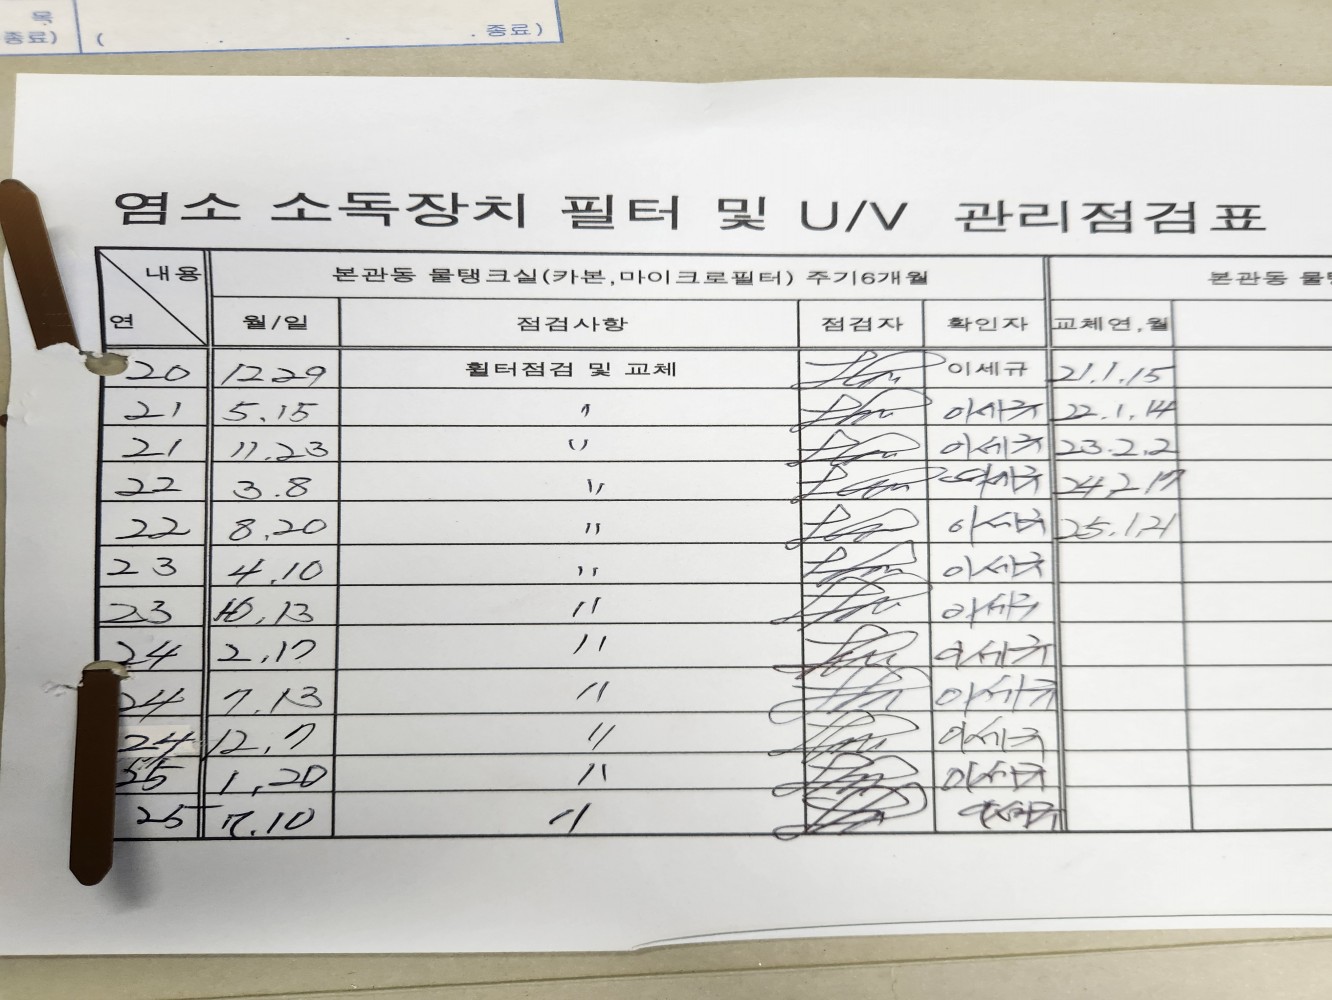 목
종료) ( . . . 종료)
염소 소독장치 필터 및 U/V 관리점검표
내용 본관동 물탱크실(카본,마이크로필터) 주기6개월 본관동 물
연 월/일 점검사항 점검자 확인자 교체연,월
20 12.29 휠터점검 및 교체 이세규 21.1.15
21 5.15 〃 이세규 22.1.14
21 11.23 〃 이세규 23.2.2
22 3.8 〃 이세규 24.2.17
22 8.20 〃 이세규 25.1.21
23 4.10 〃 이세규
23 10.13 〃 이세규
24 2.17 〃 이세규
24 7.13 〃 이세규
24 12.7 〃 이세규
25 1.20 〃 이세규
25 7.10 〃 이세규